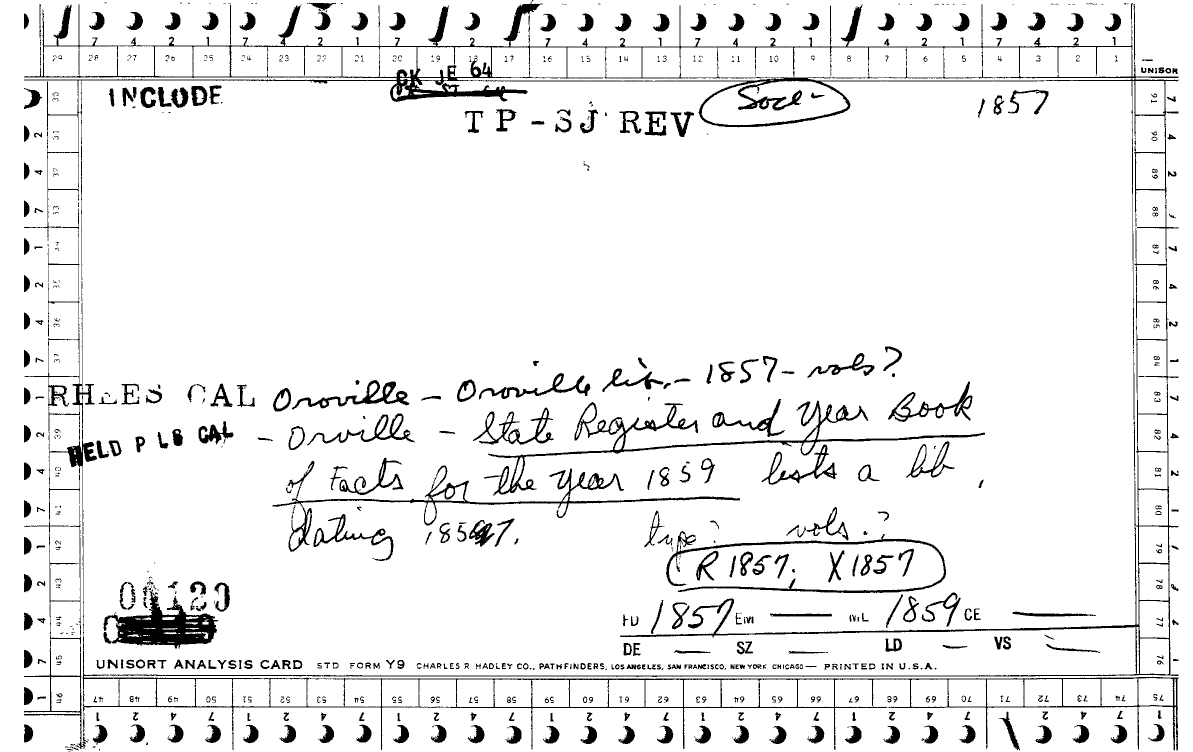 7 4 2 1 7 4 2 1 7 4 2 1 7 4 2 1 7 4 2 1 7 4 2 1 7 4 2 1
29 28 27 26 25 24 23 22 21 20 19 18 17 16 15 14 13 12 11 10 9 8 7 6 5 4 3 2 1
UNISOR
INCLUDE
CK JE 64
TP-SJ REV
Soce-
1857
RHEES CAL Oroville - Oroville lib. - 1857 - vols?
HELD P LB CAL - Orville - State Register and Year Book
of Facts for the year 1859 lists a lib.
dating 1857.
type? vols.?
R 1857; X 1857
00120
FD 1857 EM — ML 1859 CE —
DE — SZ LD — VS —
UNISORT ANALYSIS CARD STD FORM Y9 CHARLES R HADLEY CO., PATHFINDERS, LOS ANGELES, SAN FRANCISCO, NEW YORK CHICAGO — PRINTED IN U.S.A.
46 47 48 49 50 51 52 53 54 55 56 57 58 59 60 61 62 63 64 65 66 67 68 69 70 71 72 73 74 75